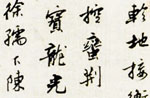 軫地接衡
控蠻荊
寶龍光
徐孺下陳